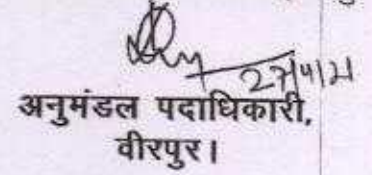 27/4/21
अनुमंडल पदाधिकारी,
वीरपुर।